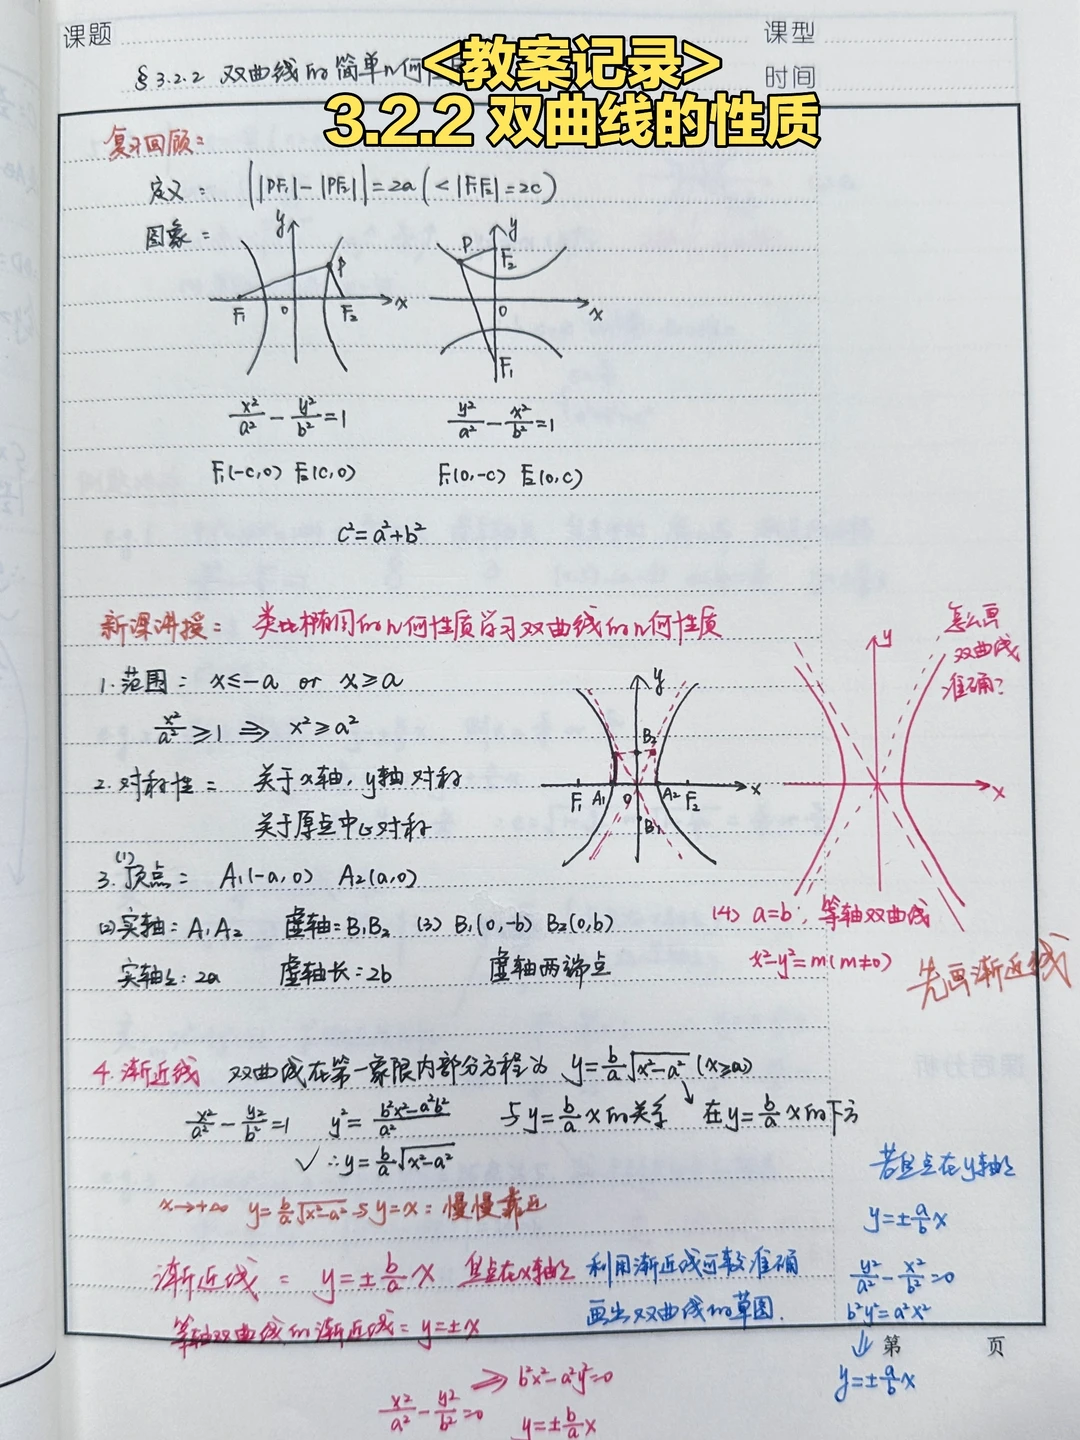 课题
课型
§3.2.2 双曲线的简单几何性
时间
<教案记录>
3.2.2 双曲线的性质
复习回顾：
定义： ||PF₁|-|PF₂||=2a(<|F₁F₂|=2c)
图象：
y
P
F₁ O F₂ x
y
P F₂
O x
F₁
x²/a² - y²/b² = 1
y²/a² - x²/b² = 1
F₁(-c,0) F₂(c,0)
F₁(0,-c) F₂(0,c)
c²=a²+b²
新课讲授： 类比椭圆的几何性质学习双曲线的几何性质
1.范围： x≤-a or x≥a
x²/a² ≥1 ⇒ x²≥a²
2.对称性： 关于x轴，y轴对称
关于原点中心对称
3.(1)顶点： A₁(-a,0) A₂(a,0)
(2)实轴：A₁A₂ 虚轴：B₁B₂ (3) B₁(0,-b) B₂(0,b)
实轴长：2a 虚轴长：2b 虚轴两端点
y
B₂
F₁ A₁ O A₂ F₂ x
B₁
怎么画
双曲线
准确？
y
x
(4) a=b，等轴双曲线
x²-y²=m(m≠0)
先画渐近线
4.渐近线 双曲线在第一象限内部分方程为 y=b/a√(x²-a²) (x≥a)
x²/a² - y²/b² =1 y²=(b²x²-a²b²)/a² 与y=b/a x的关系 ↘ 在y=b/a x的下方
✓ ∴y=b/a√(x²-a²)
x→+∞ y=b/a√(x²-a²)与y=x：慢慢靠近
渐近线： y=±b/a x 焦点在x轴上
利用渐近线可较准确
画出双曲线的草图.
等轴双曲线的渐近线：y=±x
x²/a² - y²/b² =0 ⇒ b²x²-a²y²=0
y=±b/a x
若焦点在y轴上
y=±a/b x
y²/a² - x²/b² =0
b²y²=a²x²
⇓
y=±a/b x
第 页
课题分析